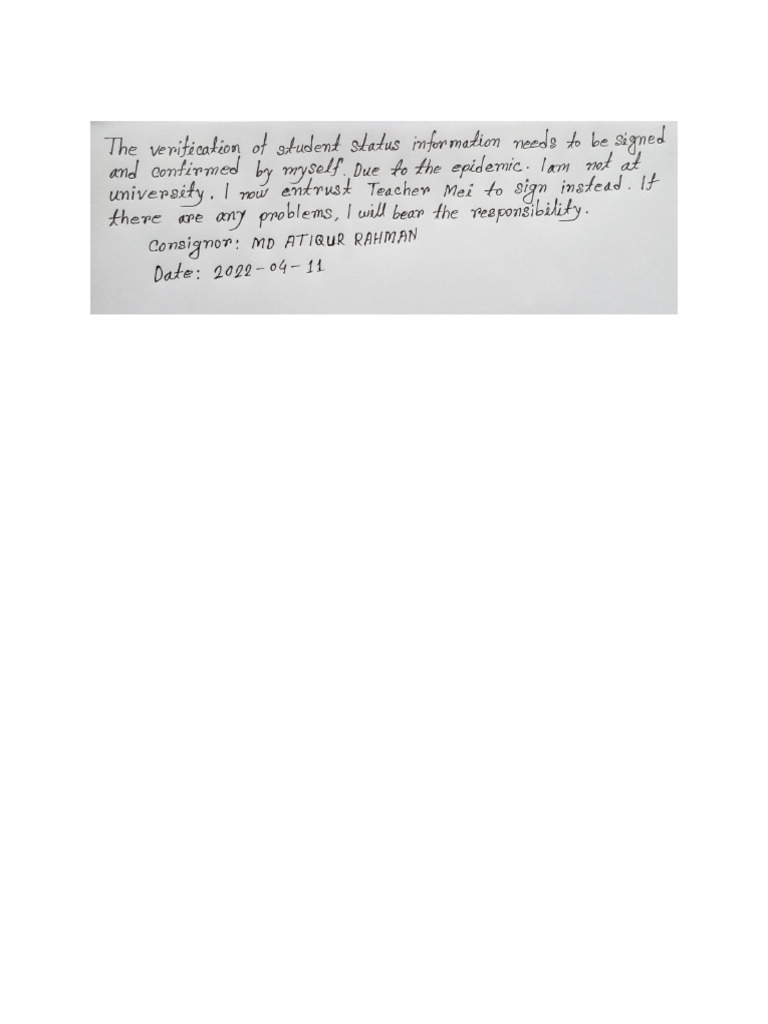 The verification of student status information needs to be signed
and confirmed by myself. Due to the epidemic. I am not at
university. I now entrust Teacher Mei to sign instead. If
there are any problems, I will bear the responsibility.
Consignor: MD ATIQUR RAHMAN
Date: 2022-04-11